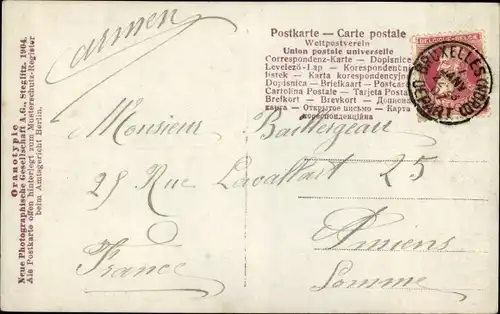 Carmen
Postkarte — Carte postale
Weltpostverein
Union postale universelle
Correspondenz-Karte — Dopisnice
Levelező-Lap — Korespondencni
listek — Karta korespondencyjna
Dopisnica — Briefkaart — Postcard
Cartolina Postale — Tarjeta Postal
Brefkort — Brevkort — Дописна
карта — Открытое письмо — Карта
кореспонденційна
BRUXELLES
DEPART
Monsieur Baillergeau
25 Rue Lavallart 25
Amiens
France Somme
Oranotypie
Neue Photographische Gesellschaft A.G., Steglitz. 1904.
Als Postkarte offen hinterlegt zum Musterschutz-Register
beim Amtsgericht Berlin.